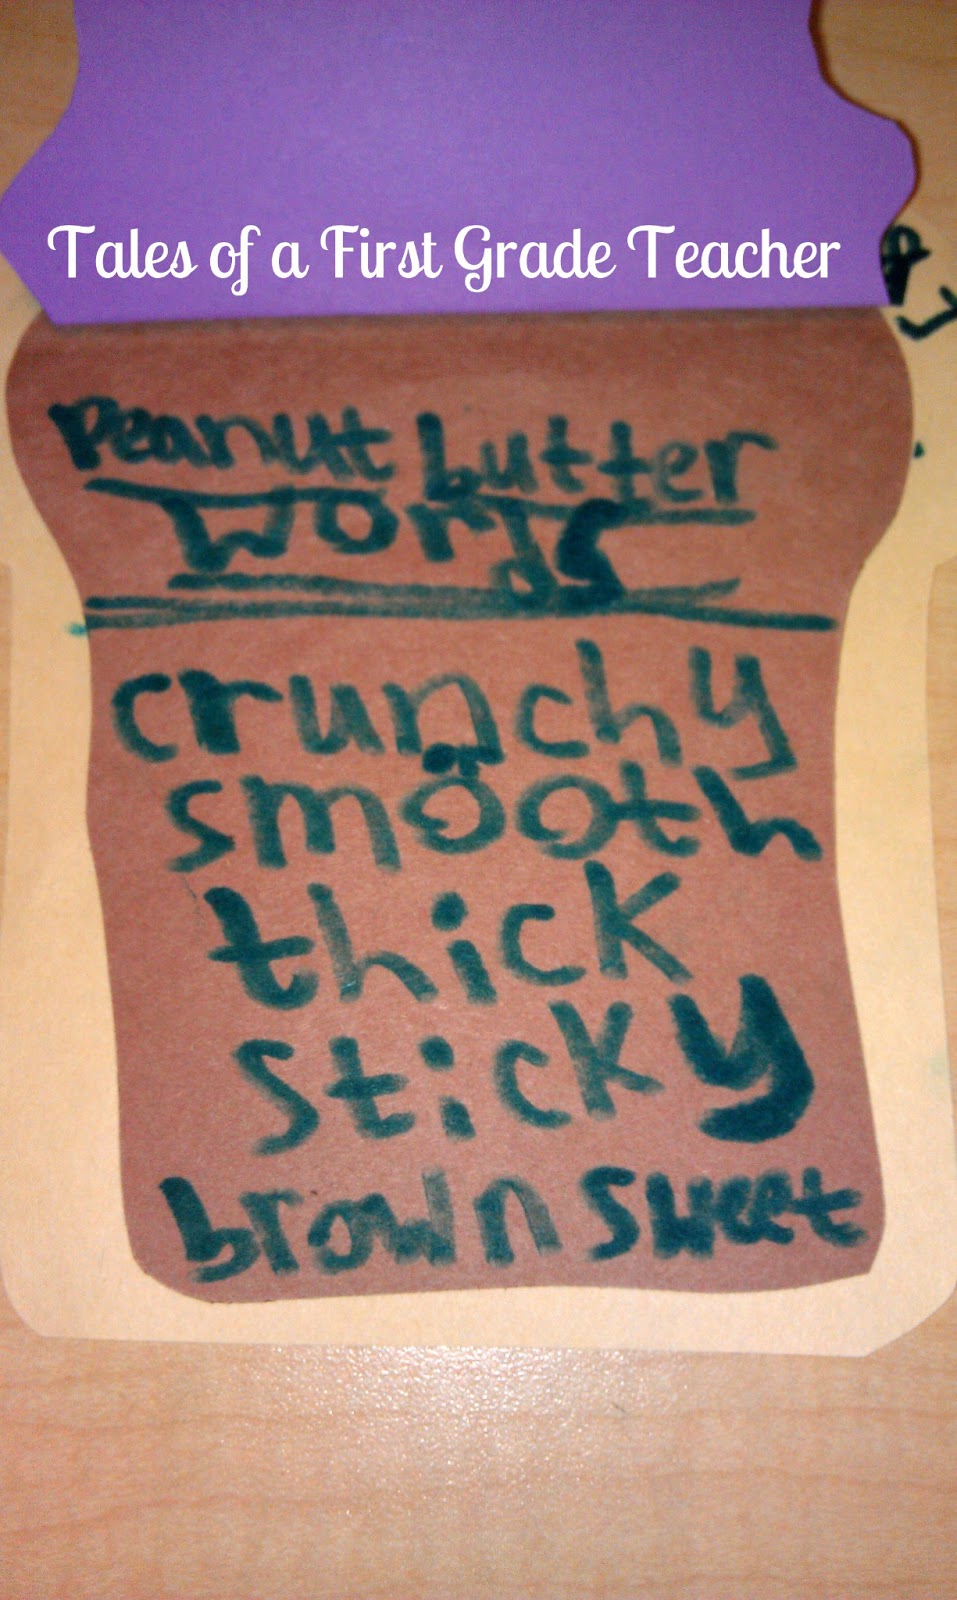 Tales of a First Grade Teacher
Peanut butter
words
crunchy
smooth
thick
sticky
brown sweet